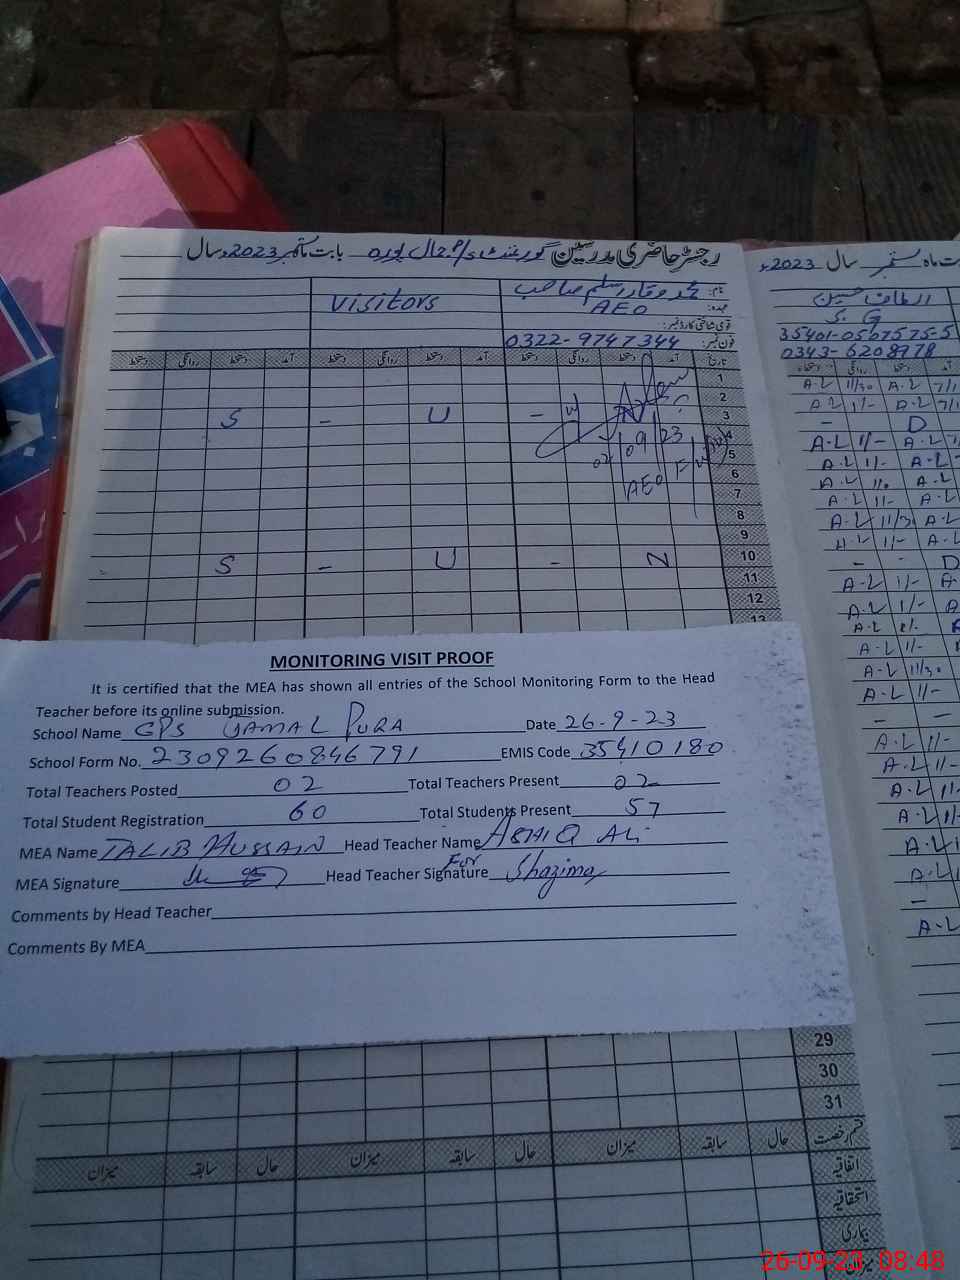 رجسٹر حاضری مدرسین گورنمنٹ پرائمری جمال پورہ بابت ماہ ستمبر 2023ء سال
نام: محمد وقار اسلم صاحب
Visitors
عہدہ: AEO
قومی شناختی کارڈ نمبر:
فون نمبر: 0322-9747344
تاریخ آمد دستخط روانگی دستخط آمد دستخط روانگی دستخط آمد دستخط روانگی دستخط
1
2
3 S - U - N
02/09/23
AEO
5
6
7
8
9
10 S - U - N
11
12
13
MONITORING VISIT PROOF
It is certified that the MEA has shown all entries of the School Monitoring Form to the Head
Teacher before its online submission.
School Name GPS JAMAL PURA Date 26-9-23
School Form No. 2309260846791 EMIS Code 35410180
Total Teachers Posted 02 Total Teachers Present 02
Total Student Registration 60 Total Students Present 57
MEA Name TALIB HUSSAIN Head Teacher Name ASHIQ ALI
MEA Signature Head Teacher Signature For Shazima
Comments by Head Teacher
Comments By MEA
29
30
31
قسم رخصت حال سابقہ میزان حال سابقہ میزان حال سابقہ میزان
اتفاقیہ
استحقاقیہ
بیماری
میزان
ت ماہ ستمبر سال 2023ء
الطاف حسین
S.G
35401-0567575-5
0343-6208978
آمد دستخط روانگی دستخط
A-L 11/30 A-L 7/1
A-L 1/- A-L 7/1
- D
A-L 1/- A-L
A-L 1/- A-L
A-L 1/- A-L
A-L 1/- A-L
A-L 11/30 A-L
A-L 1/- A-L
- - D
A-L 1/- A
A-L 1/- A
A-L A
A-L 1/-
A-L 11/30
A-L 1/-
- -
A-L 1/-
A-L 11/-
A-L
A-L
A-L
A-L
-
A-L
26-09-23 08:48